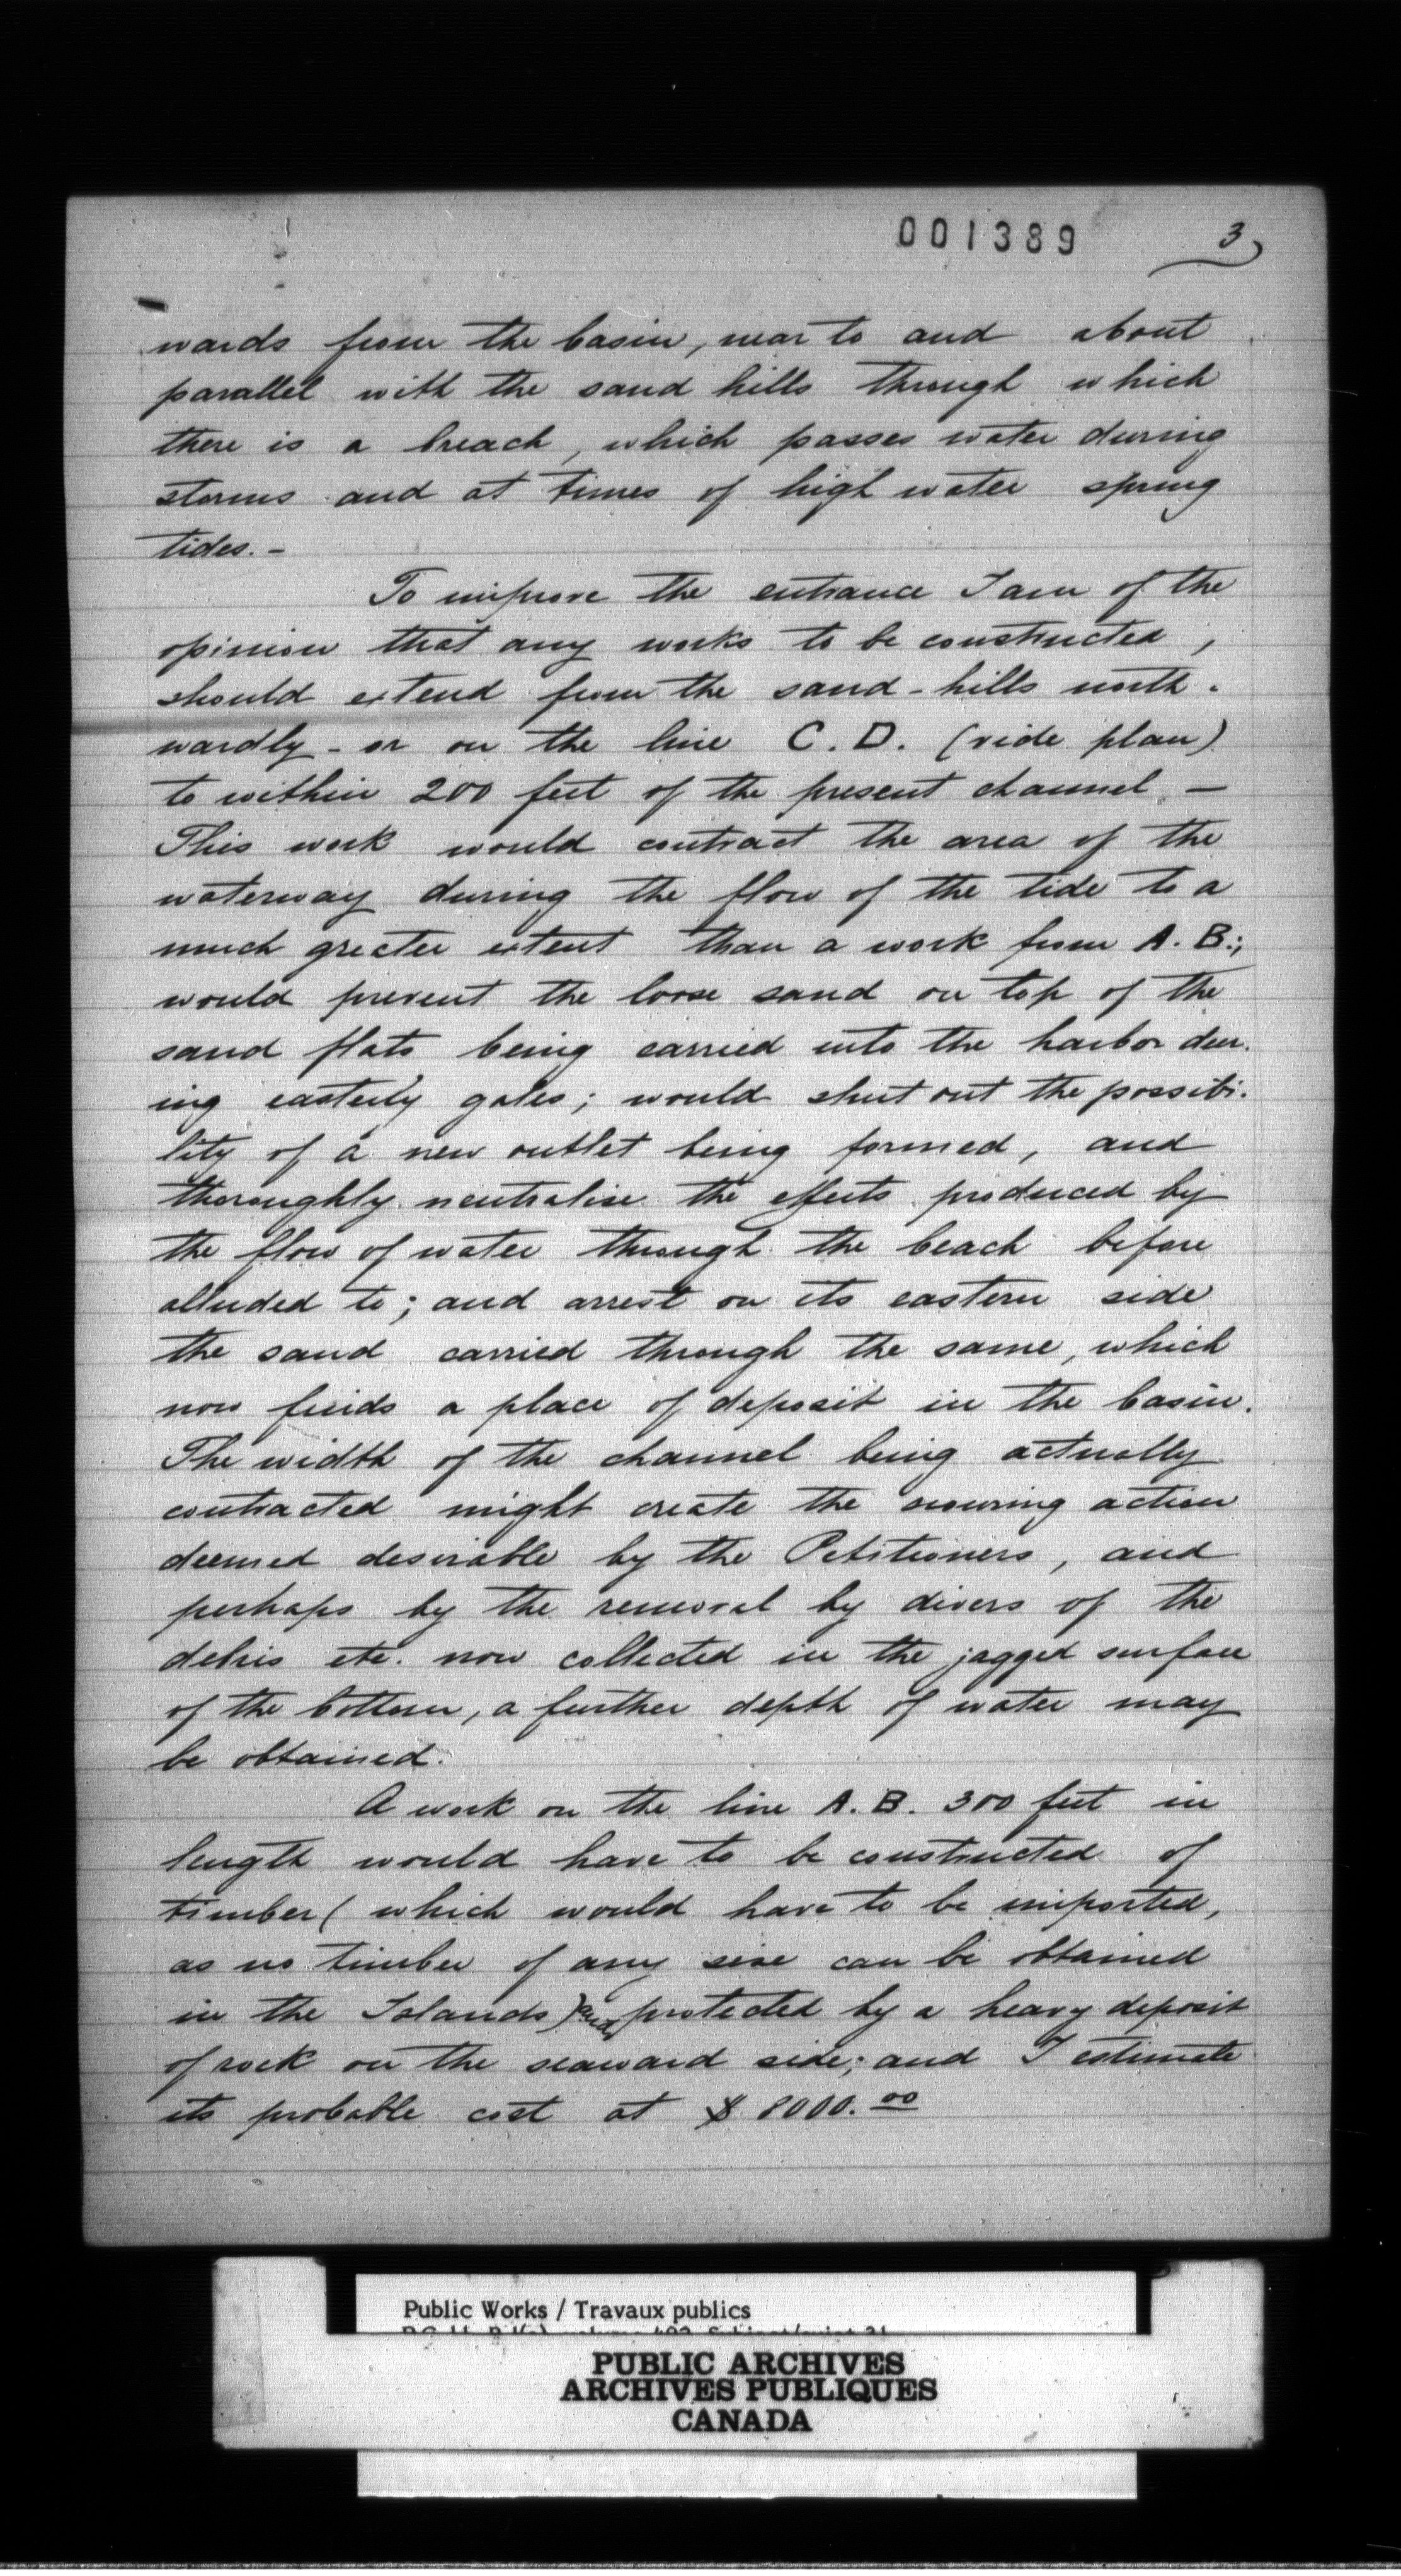 001389
3
wards from the basin, near to and about
parallel with the sand hills through which
there is a breach, which passes water during
storms and at times of high water spring
tides. -
To improve the entrance I am of the
opinion that any works to be constructed,
should extend from the sand-hills north-
wardly - or on the line C. D. (vide plan)
to within 200 feet of the present channel. -
This work would contract the area of the
waterway during the flow of the tide to a
much greater extent than a work from A. B.;
would prevent the loose sand on top of the
sand flats being carried into the harbor dur-
ing easterly gales; would shut out the possibi-
lity of a new outlet being formed, and
thoroughly neutralise the effects produced by
the flow of water through the beach before
alluded to; and arrest on its eastern side
the sand carried through the same, which
now finds a place of deposit in the basin.
The width of the channel being actually
contracted might create the scouring action
deemed desirable by the Petitioners, and
perhaps by the removal by divers of the
debris etc. now collected in the jagged surface
of the bottom, a further depth of water may
be obtained.
A work on the line A. B. 300 feet in
length would have to be constructed of
timber ( which would have to be imported,
as no timber of any size can be obtained
in the Islands) and protected by a heavy deposit
of rock on the seaward side; and I estimate
its probable cost at $ 8000.00
Public Works / Travaux publics
PUBLIC ARCHIVES
ARCHIVES PUBLIQUES
CANADA